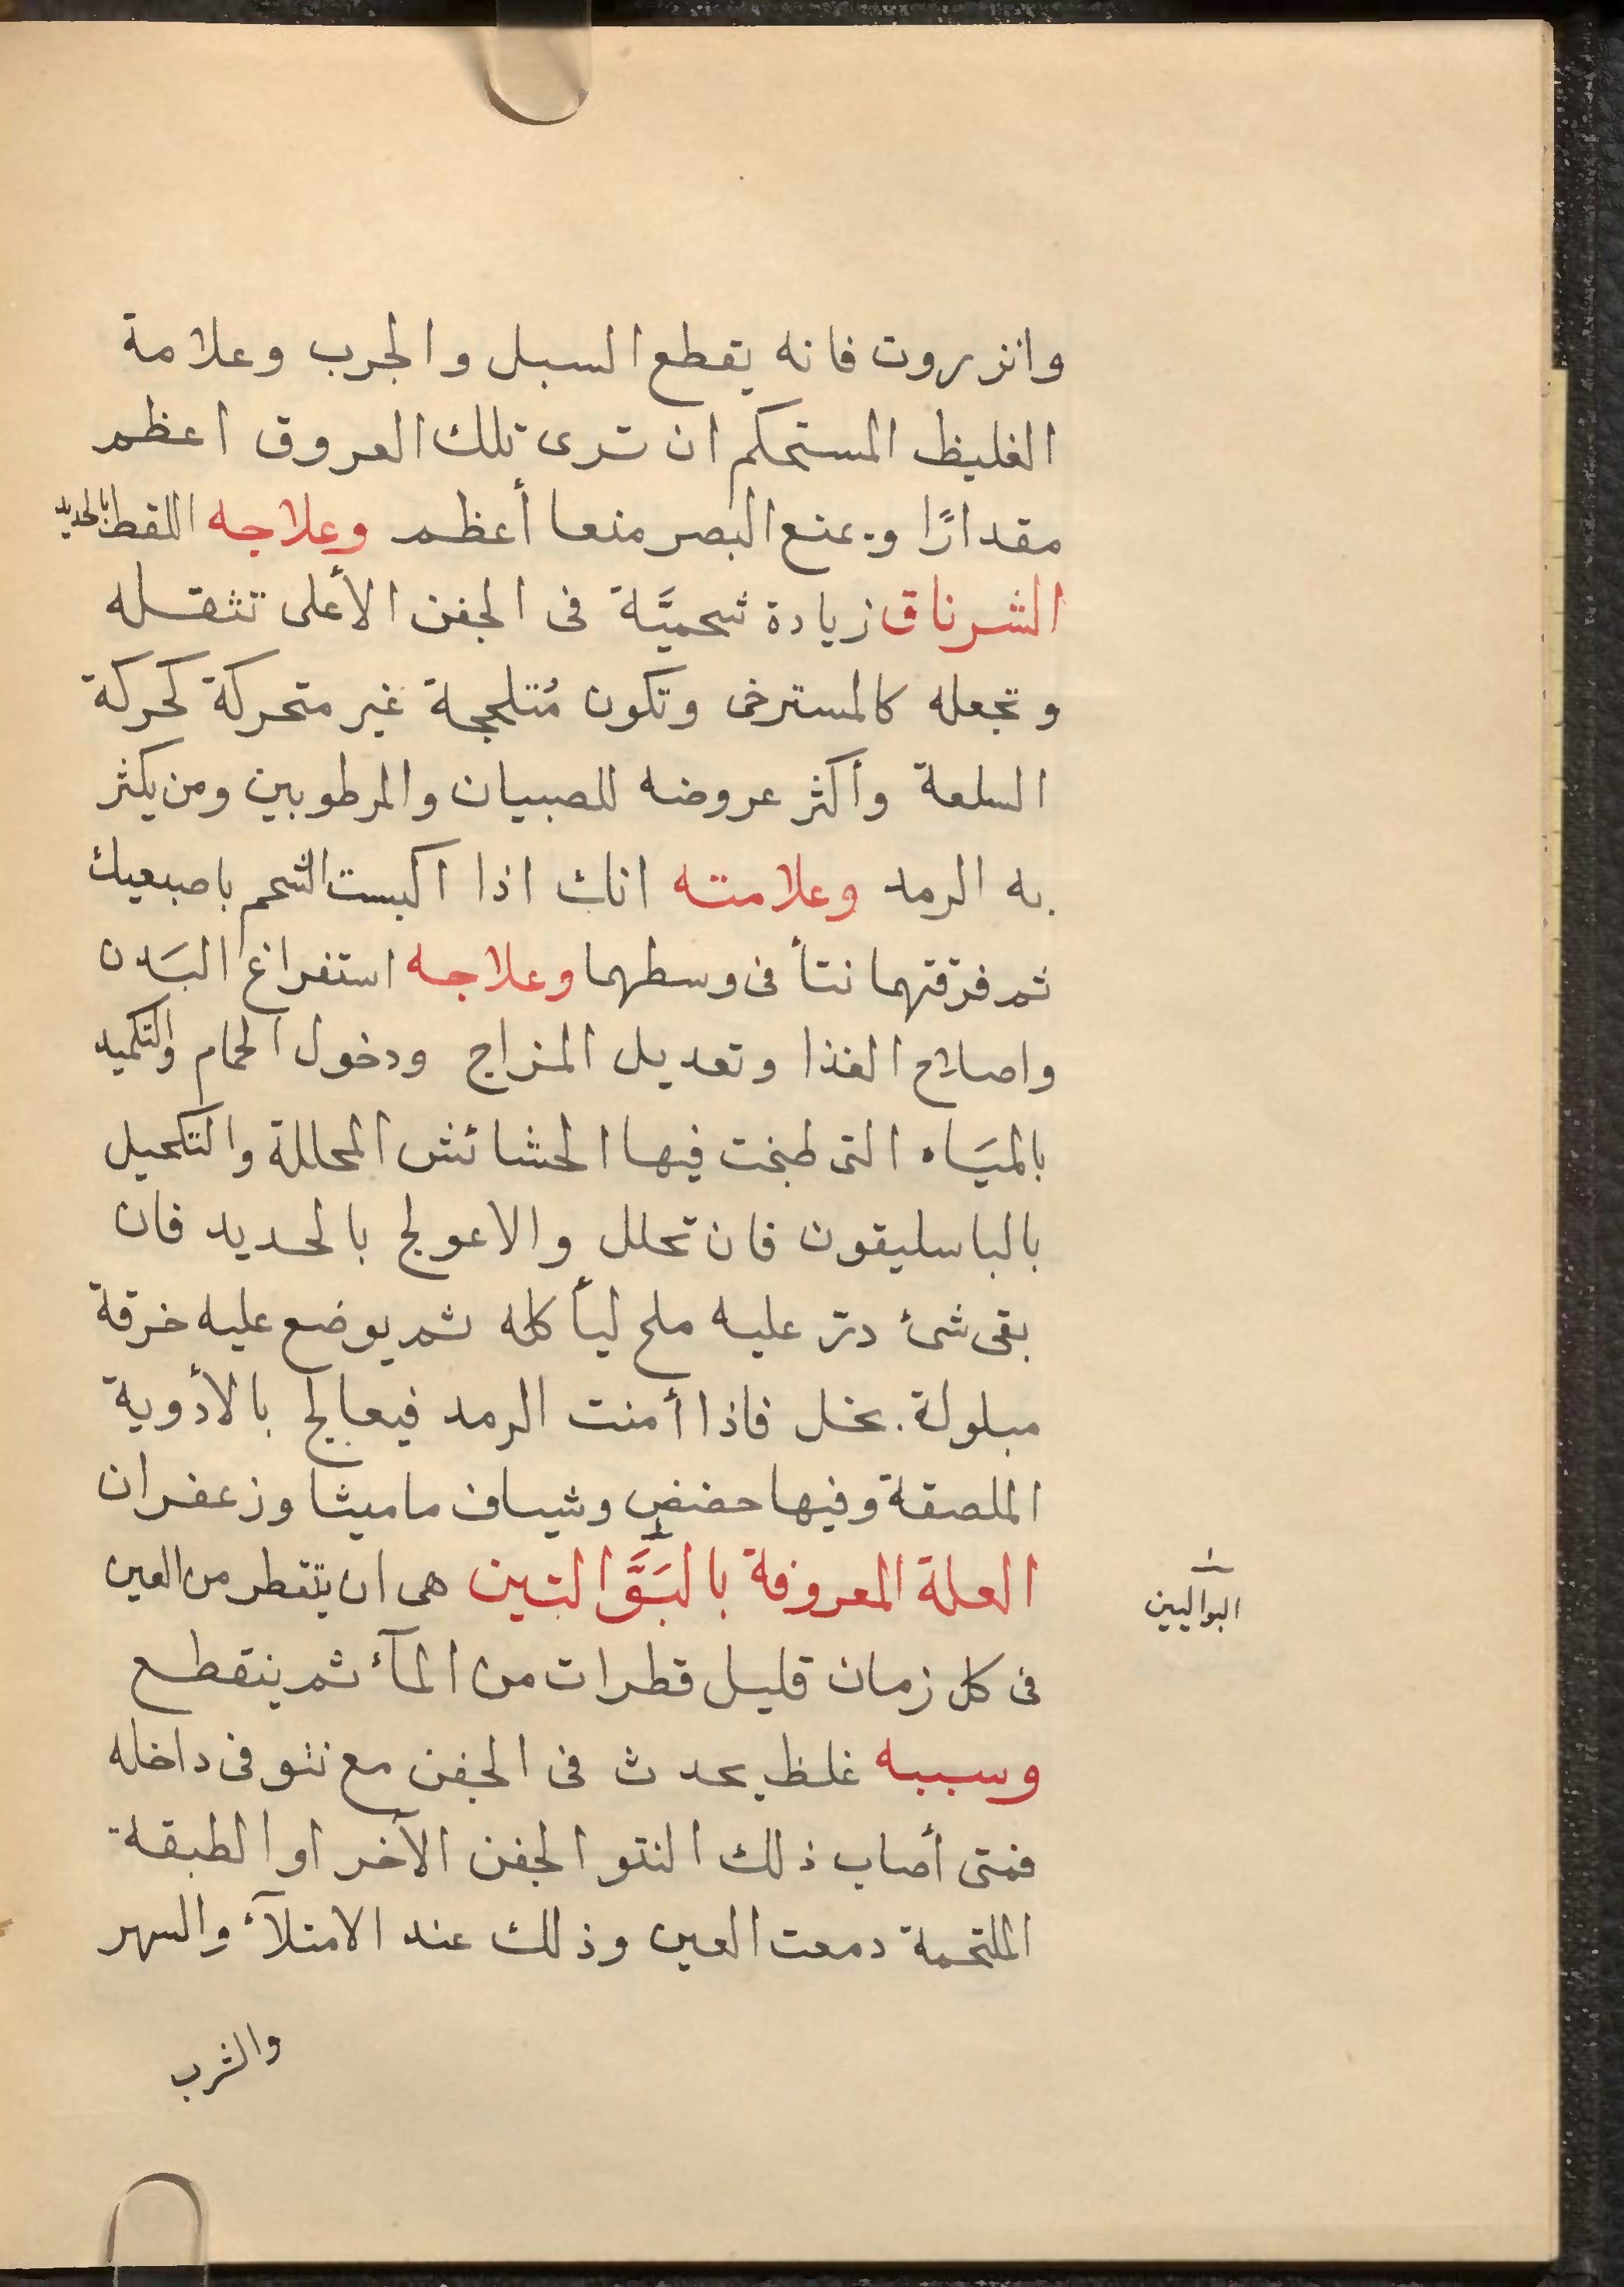 وانزروت فانه يقطع السبل والجرب وعلامة
الغليظ المستحكم ان ترى تلك العروق اعظم
مقدارًا ويمنع البصر منعا أعظم وعلاجه اللقط بالحديد
الشرناق زيادة شحميَّة فى الجفن الأعلى تثقله
وتجعله كالمسترخى وتكون مُتلججة غير متحركة كحركة
السلعة وأكثر عروضه للصبيان والمرطوبين ومن يكثر
به الرمد وعلامته انك اذا اكبست الشحم باصبعيك
ثم فرقتهما نتأ فى وسطهما وعلاجه استفراغ البَدن
واصلاح الغذا وتعديل المزاج ودخول الحمام والتكميد
بالميَاه التى طبخت فيها الحشائش المحللة والتكحيل
بالباسليقون فان تحلل والا عولج بالحديد فان
بقى شئ ذر عليه ملح ليأكله ثم يوضع عليه خرقة
مبلولة بخل فاذا أمنت الرمد فيعالج بالأدوية
الملصقة وفيها حضض وشياف ماميثا وزعفران
العلة المعروفة بالبَوَّالتين هى ان يتقطر من العين
البواليين
فى كل زمان قليل قطرات من المآء ثم ينقطع
وسببه غلظ يحدث فى الجفن مع نتو فى داخله
فمتى أصاب ذلك النتو الجفن الآخر او الطبقة
الملتحمة دمعت العين وذلك عند الامتلآء والسهر
والشرب